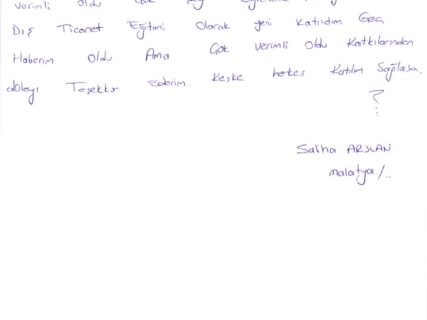 verimli oldu Çok
Dış Ticaret Eğitimi Olarak yeni Katıldım Geç
Haberim Oldu Ama Çok verimli oldu Katkılarından
dolayı Teşekkür Ederim. Keşke herkes Katılım Sağlasa.
?
Saliha ARSLAN
malatya/..